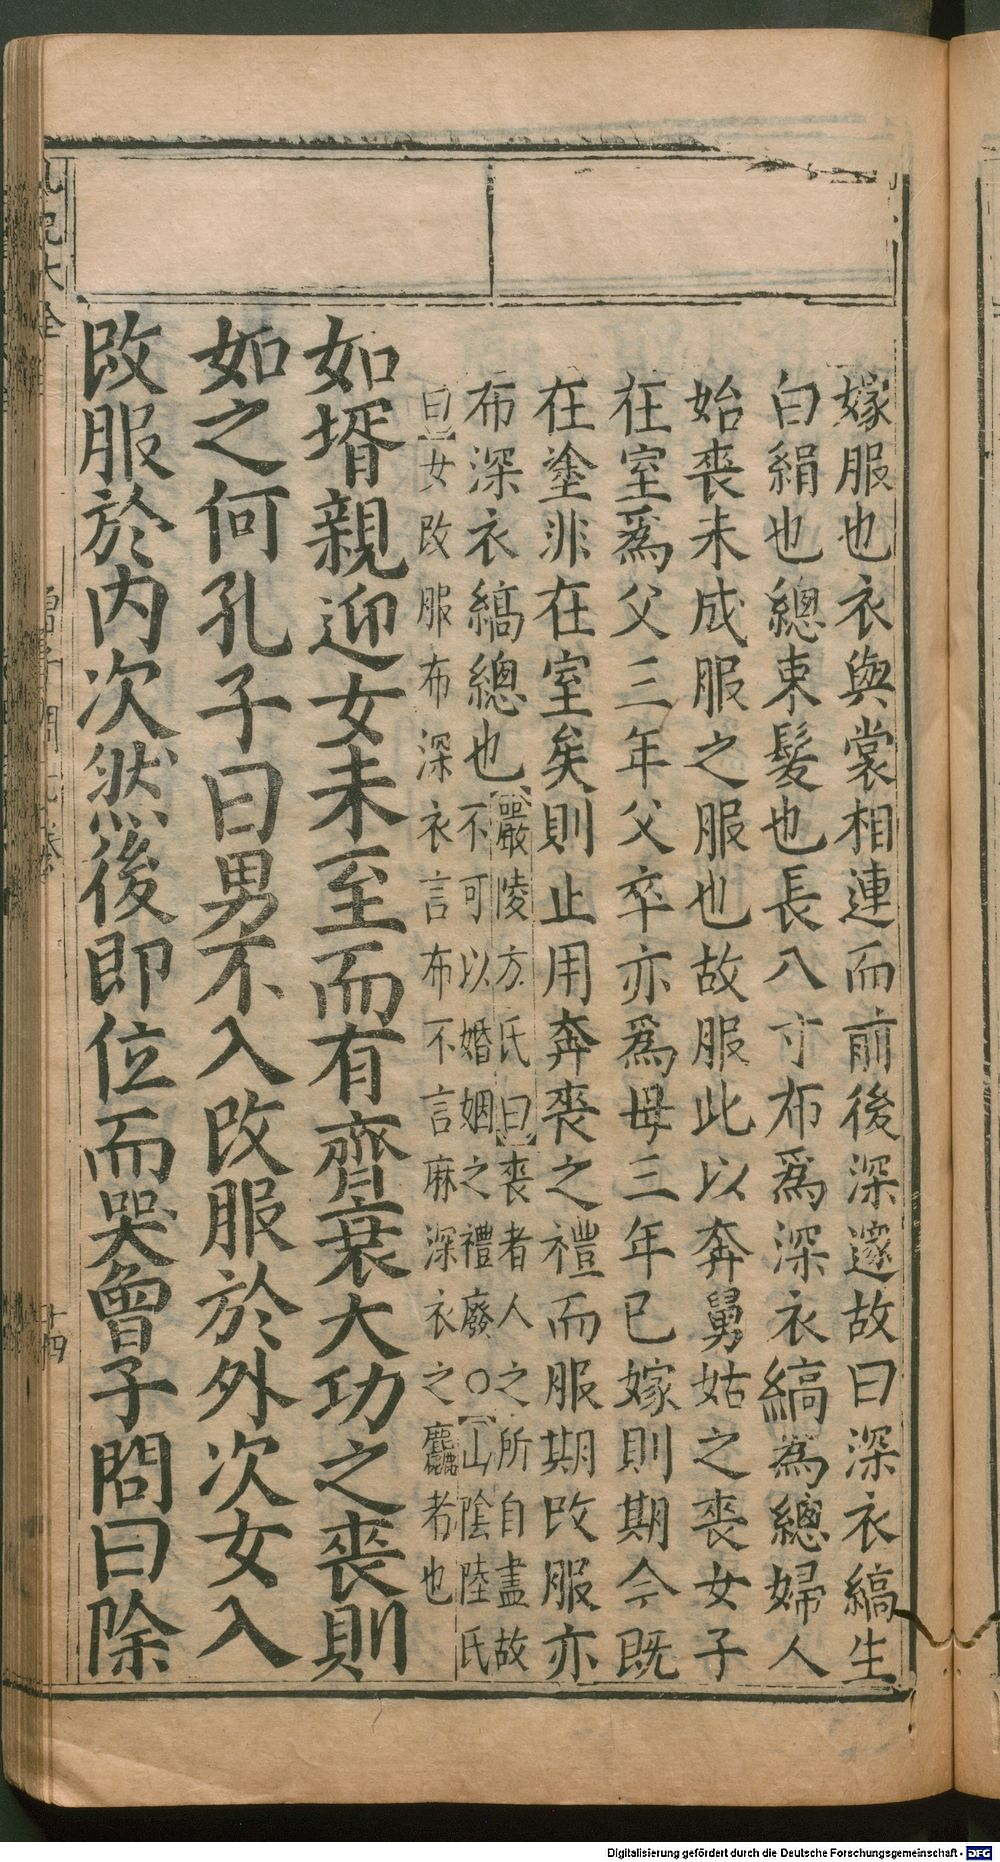 嫁服也衣與裳相連而前後深邃故曰深衣縞生
白絹也總束髮也長八寸布爲深衣縞爲總婦人
始喪未成服之服也故服此以奔舅姑之喪女子
在室爲父三年父卒亦爲母三年已嫁則期今既
在塗非在室矣則止用奔喪之禮而服期改服亦
布深衣縞總也【嚴陵方氏曰】喪者人之所自盡故
不可以婚姻之禮廢○【山陰陸氏
曰】女改服布深衣言布不言麻深衣之麤者也
如壻親迎女未至而有齊衰大功之喪則
如之何孔子曰男不入改服於外次女入
改服於內次然後即位而哭曾子問曰除
十四
Digitalisierung gefördert durch die Deutsche Forschungsgemeinschaft - DFG